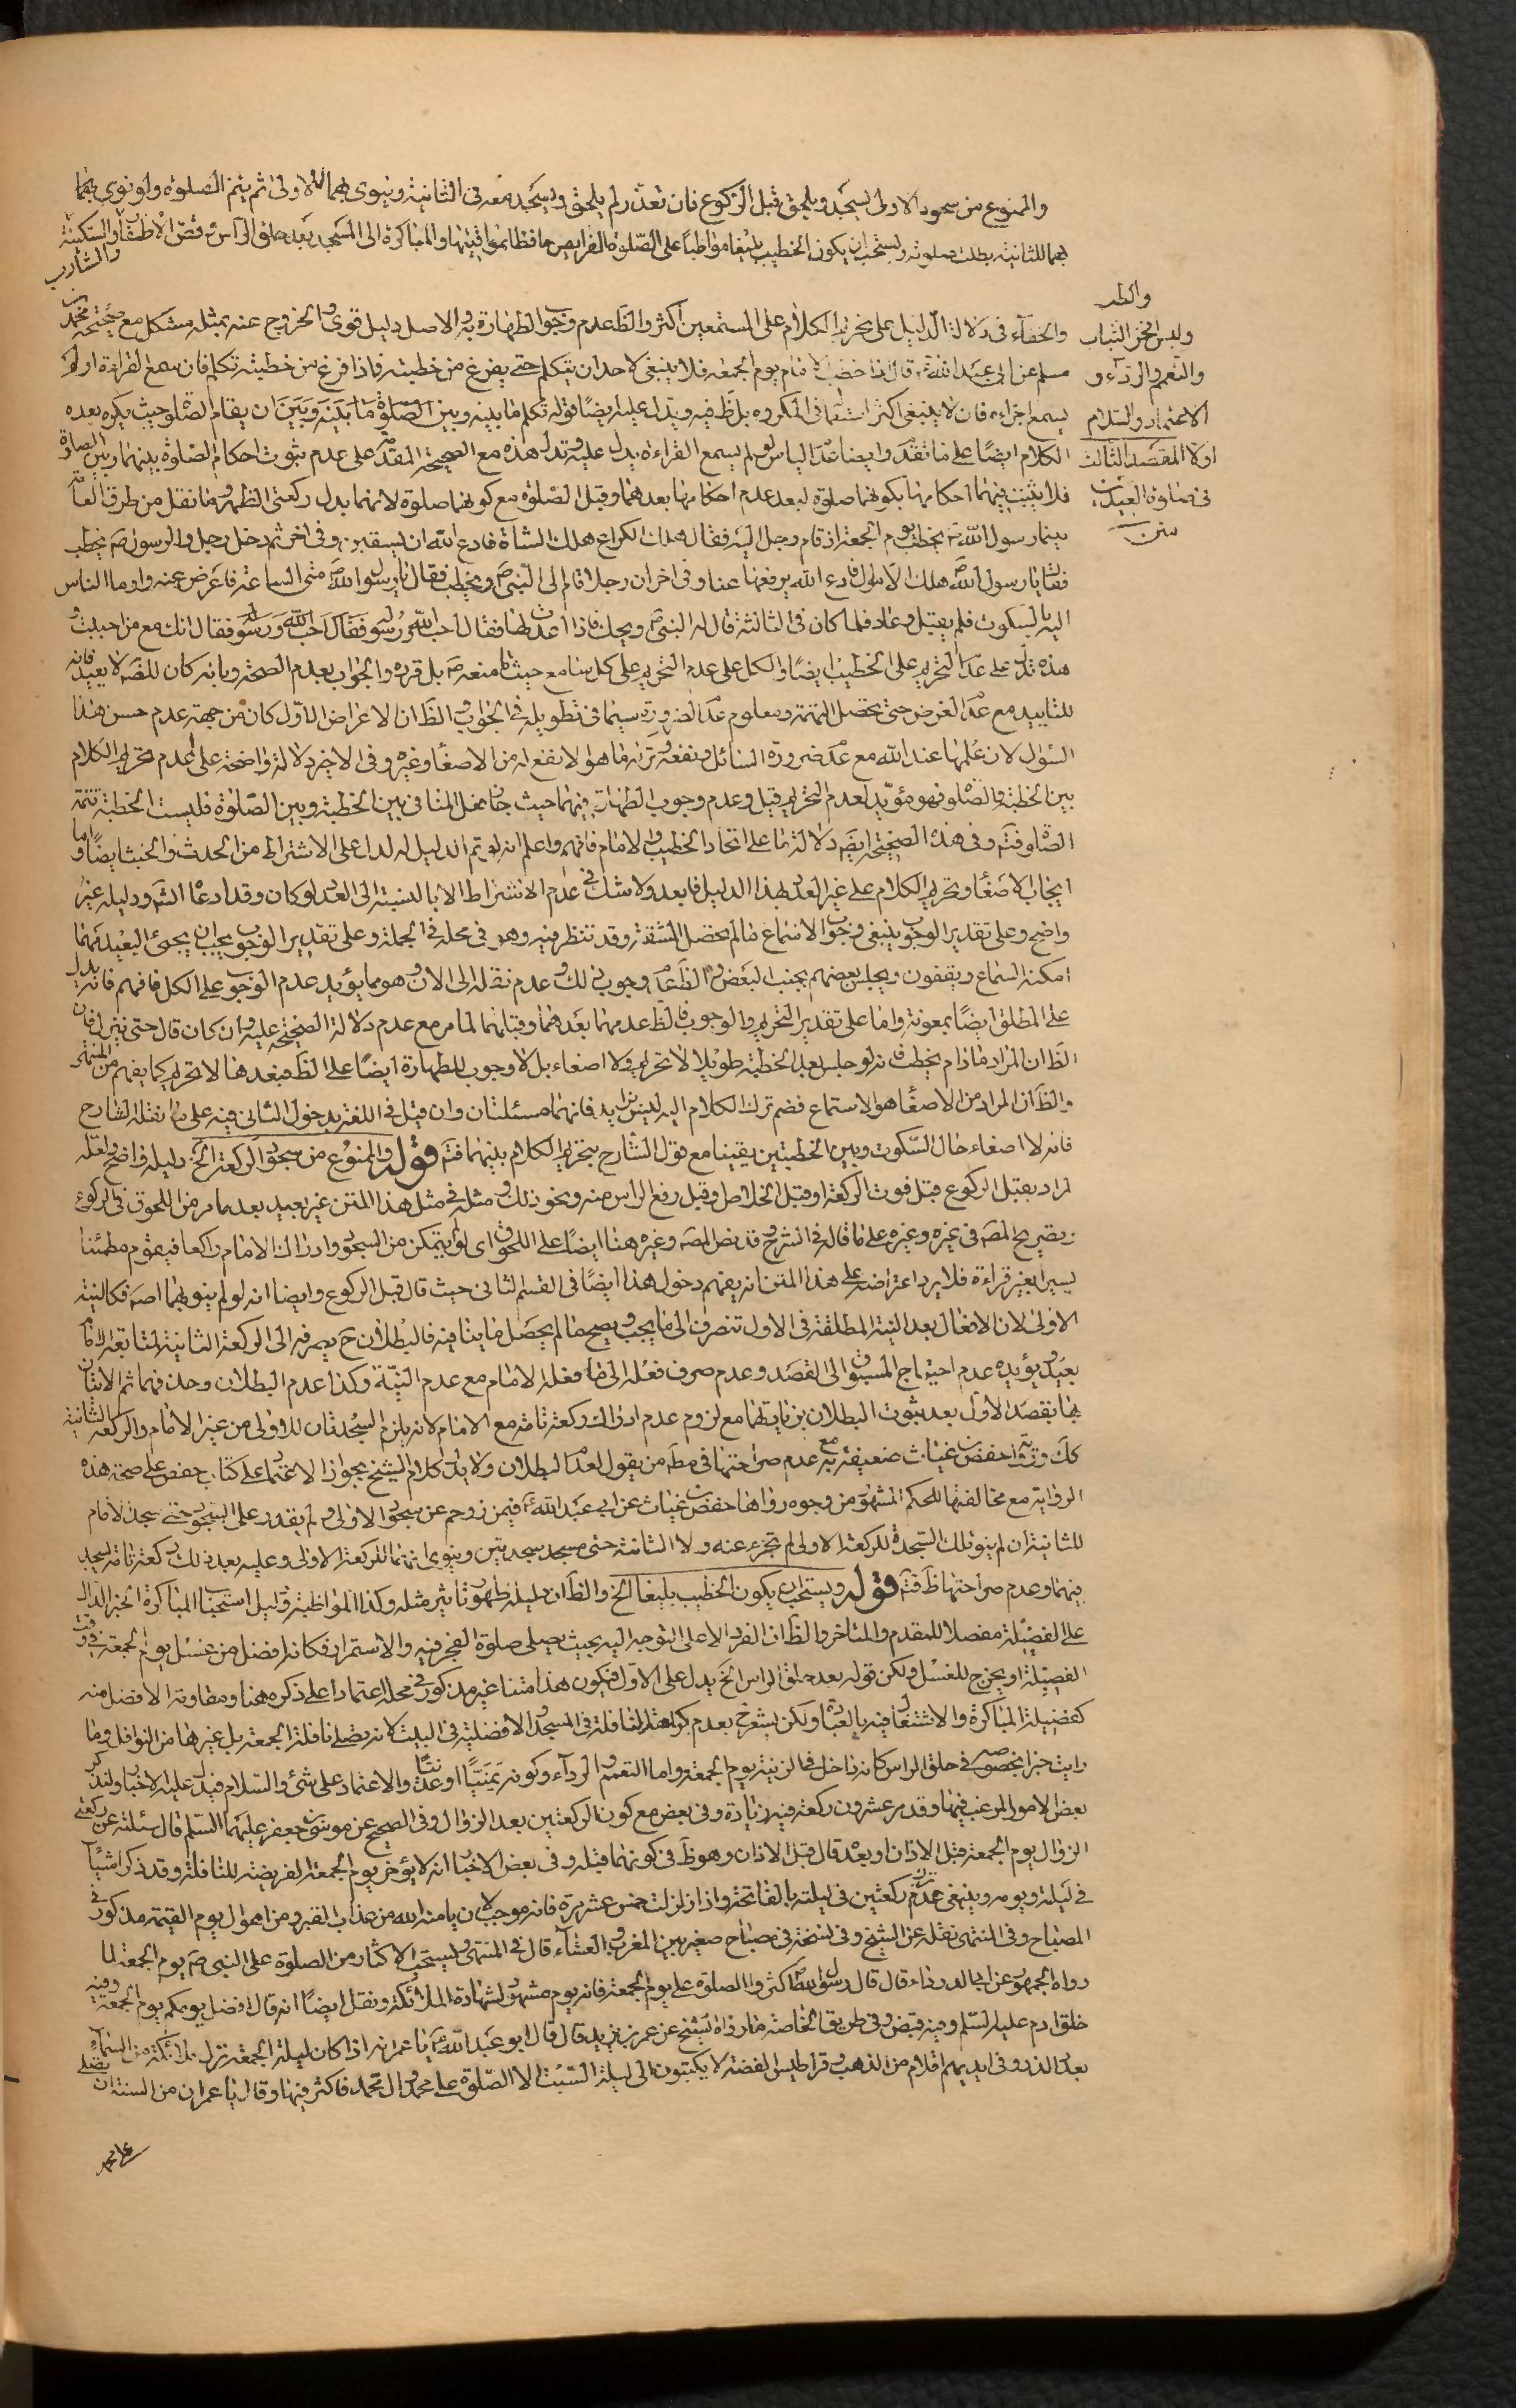 والممنوع من سجود الاولى يسجد ويلحق قبل الركوع فان تعذر لم يلحق ويسجد معه فى الثانية وينوى بهما للاولى ثم يتم الصلوة ولو نوى بهما
بهما للثانية بطلت صلوته ويستحب ان يكون الخطيب بليغا مواظبا على الصلوة الفرايض حافظا لمواقيتها والمباكرة الى المسجد بعد حلق الراس وقص الاظفار والسكينة
والشارب
والطيب
ولبس افخر الثياب
والتعمم والرداء و
الاعتماد والسلام
اولا المقصد الثالث
فى صلوة العيدين
والخفاء فى دلالة الدليل على تحريم الكلام على المستمعين اكثر والظ عدم وجوب الطهارة والاصل دليل قوى والخروج عنه بمثله مشكل مع صحيحة محمد بن
مسلم عن ابى عبد الله ع قال اذا خطب الامام يوم الجمعة فلا ينبغى لاحد ان يتكلم حتى يفرغ من خطبته فاذا فرغ من خطبته تكلم فان سمع القراءة او لم
يسمع اجزاه فان لا ينبغى اكثر استعمالا فى المكروه بل ظ فيه ويدل عليه ايضا قوله تكلم ما بينه وبين الصلوة ما بينه وبين ان يقام الصلوة حيث يكره بعده
الكلام ايضا على ما تقدم وايضا عدم الباس لو لم يسمع القراءة يدل عليه وتدل هذه مع الصحيحة المقدمة على عدم ثبوت احكام الصلوة بينهما وبين الصلوة
فلا يثبت فيهما احكامها بكونهما صلوة لبعد عدم احكامها بعدهما وقبل الصلوة مع كونهما صلوة لانهما بدل ركعتى الظهر وما نقل من طرق العامة
بينما رسول الله ص يخطب يوم الجمعة اذ قام رجل اليه فقال هلك الكراع هلك الشاة فادع الله ان يسقين وفى اخر ثم دخل رجل والرسول ص يخطب
فقال يا رسول الله هلك الاموال فادع الله يرفعها عنا وفى اخر ان رجلا قام الى النبى ص ويخطب فقال يا رسول الله متى الساعة فاعرض عنه واوما الناس
اليه بالسكوت فلم يقبل وعاد فلما كان فى الثالثة قال له النبى ص ويحك ماذا اعددت لها فقال احب الله ورسوله فقال احب الله ورسوله فقال انك مع من احببت و
هذه تدل على عدم التحريم على الخطيب ايضا والكل على عدم التحريم على كل سامع حيث ما منعه ص بل قرره والجواب بعدم الصحة وبانه كان للضرورة لا يفيد فانه
للتاييد مع عدم الغرض حتى يحصل التهمة ومعلوم عدم الضرورة سيما فى تطويله فى الجواب والظ ان الاعراض الاول كان من جهة عدم حسن هذا
السؤال لان علمها عند الله مع عدم ضرورة السائل ونفعه وترك ما هو الانفع له من الاصغاء وغيره وفى الاخير دلالة واضحة على عدم تحريم الكلام
بين الخطبة والصلوة فهو مؤيد لعدم التحريم قبل وعدم وجوب الطهارة فيهما حيث جاز فعل المنافى بين الخطبة وبين الصلوة فليست الخطبة تتمة
الصلوة فتم وفى هذه الصحيحة ايضا دلالة ما على اتحاد الخطيب والامام فافهم واعلم انه لو تم الدليل لدل على الاشتراط من الحدث والخبث ايضا واما
ايجاب الاصغاء وتحريم الكلام على غير العدد بهذا الدليل فابعد ولا شك فى عدم الاشتراط الا بالنسبة الى العدد لو كان وقد ادعاه الش ودليله غير
واضح وعلى تقدير الوجوب ينبغى وجوب الاستماع مالم يحصل المشقة وقد تنظر فيه وهو فى محله فى الجملة وعلى تقدير الوجوب يجب ان يجئ البعيد مهما
امكنه السماع ويقفون ويجلس بعضهم بجنب البعض والظ عدم وجوب ذلك وعدم نقله الى الان وهو مما يؤيد عدم الوجوب على الكل فافهم فانه يدل
على المطلق ايضا بمعونة واما على تقدير التحريم والوجوب فالظ عدمهما بعدهما وقبلهما لما مر مع عدم دلالة الصحيحة عليه وان كان قال حتى ينزل فان
الظ ان المراد ما دام يخطب فانه لو جلس بعد الخطبة طويلا لا تحريم ولا اصغاء بل لا وجوب للطهارة ايضا على الظ فبعدها لا تحريم كما يفهم من المنتهى
والظ ان المراد من الاصغاء هو الاستماع فضم ترك الكلام اليه ليس بزايد فانهما مسئلتان وان قيل فى اللغة يدخل الثانى فيه على ما نقله الشارح
فانه لا اصغاء حال السكوت وبين الخطبتين يقينا مع قول الشارح بتحريم الكلام بينهما فتم قوله والممنوع من سجود الركعة الخ دليله واضح ولعله
اراد بقبل الركوع قبل فوت الركعة او قبل الخلاص وقبل رفع الراس منه ونحو ذلك ومثله فى مثل هذا المتن غير بعيد بعد ما مر من اللحوق فى الركوع
بتصريح المص فى غيره وغيره على ما قاله فى الشرح قد نص المص وغيره هنا ايضا على اللحوق اى لو لم يتمكن من السجود وادراك الامام راكعا فيقوم مطمئنا
يسيرا بغير قراءة فلا يرد اعتراضه على هذا المتن انه يفهم دخول هذا ايضا فى القسم الثانى حيث قال قبل الركوع وايضا انه لو لم ينو بهما اصه فكالنية
الاولى لان الافعال بعد النية المطلقة فى الاول تنصرف الى ما يجب ويصح مالم يحصل ما ينافيه فالبطلان ح بصرفه الى الركعة الثانية لمتابعة الامام
بعيد ويؤيده عدم احتياج المسبوق الى القصد وعدم صرف فعله الى ما فعله الامام مع عدم النية وكذا عدم البطلان وحذفهما ثم الاتيان
بهما بقصد الاول بعد ثبوت البطلان بزيادتهما مع لزوم عدم ادراك ركعة تامة مع الامام لانه يلزم السجدتان للاولى من غير الامام والركعة الثانية
كك ورواية حفص بن غياث ضعيفة به مع عدم صراحتها فى مط من يقول بعدم البطلان ولا يدل كلام الشيخ بجواز الاعتماد على كتاب حفص على صحة هذه
الرواية مع مخالفتها للحكم المشهور من وجوه رواها حفص بن غياث عن ابى عبد الله ع فيمن زوحم عن سجود الاولى ولم يقدر على السجود حتى سجد الامام
للثانية ان لم ينو تلك السجدة للركعة الاولى لم تجز عنه ولا الثانية حتى يسجد سجدتين وينوى انهما للركعة الاولى وعليه بعد ذلك ركعة تامة يسجد
فيهما وعدم صراحتها ظ فتم قوله ويستحب ان يكون الخطيب بليغا الخ والظ ان دليله ظهور تاثير مثله وكذا المواظبة ودليل استحباب المباكرة الخبر الدال
على الفضيلة مفصلا للمقدم والمتاخر والظ ان الفرد الاعلى التوجه اليه بحيث يصلى صلوة الفجر فيه والاستمرار فكانه افضل من غسل يوم الجمعة فى وقت
الفضيلة او يخرج للغسل ولكن قوله بعد حلق الراس الخ يدل على الاول فيكون هذا متنا غير مذكور فى محله اعتمادا على ذكره هنا ومفاوته الافضل منه
كفضيلة المباكرة والاشتغال فيه بالعبادة ولكن يشعر ح بعدم كراهة النافلة فى المسجد والافضلية فى البيت لانه يصلى نافلة الجمعة بل غيرها من النوافل وما
رايت خبرا بخصوصه فى حلق الراس كانه داخل فى الزينة يوم الجمعة واما التعمم والرداء وكونه يمنيا او عدنيا والاعتماد على شئ والسلام فيدل عليه الاخبار ولنذكر
بعض الامور المرغب فيها وقد مر عشرون ركعة فيه زيادة وفى بعض مع كون الركعتين بعد الزوال وفى الصحيح عن موسى بن جعفر عليهما السلام قال سئلته عن ركعتى
الزوال يوم الجمعة قبل الاذان او بعده قال قبل الاذان وهو ظ فى كونهما قبله وفى بعض الاخبار انه لا يؤخر يوم الجمعة الفريضة للنافلة وقد ذكر اشياء
فى ليلته ويومه وينبغى عدم ترك ركعتين فى ليلته بالفاتحة واذا زلزلت خمس عشر مرة فانه موجب لان يامنه الله من عذاب القبر ومن اهوال يوم القيمة مذكور فى
المصباح وفى المنتهى نقله عن الشيخ وفى نسخة فى مصباح صغير بين المغرب والعشاء قال فى المنتهى ويستحب الاكثار من الصلوة على النبى ص يوم الجمعة لما
رواه الجمهور عن ابى الدرداء قال قال رسول الله ص اكثروا الصلوة على يوم الجمعة فانه يوم مشهود لشهادة الملائكة ونقل ايضا انه قال افضل يومكم يوم الجمعة وفيه
خلق ادم عليه السلم وفيه قبض وفى طريق الخاصة ما رواه الشيخ عن عمر بن يزيد قال قال ابو عبد الله ع يا عمر انه اذا كان ليلة الجمعة نزل ملائكة من السماء
بعدد الذر وفى ايديهم اقلام من الذهب وقراطيس الفضة لا يكتبون الى ليلة السبت الا الصلوة على محمد وال محمد فاكثر فيها وقال يا عمر ان من السنة ان يصلى
على محمد